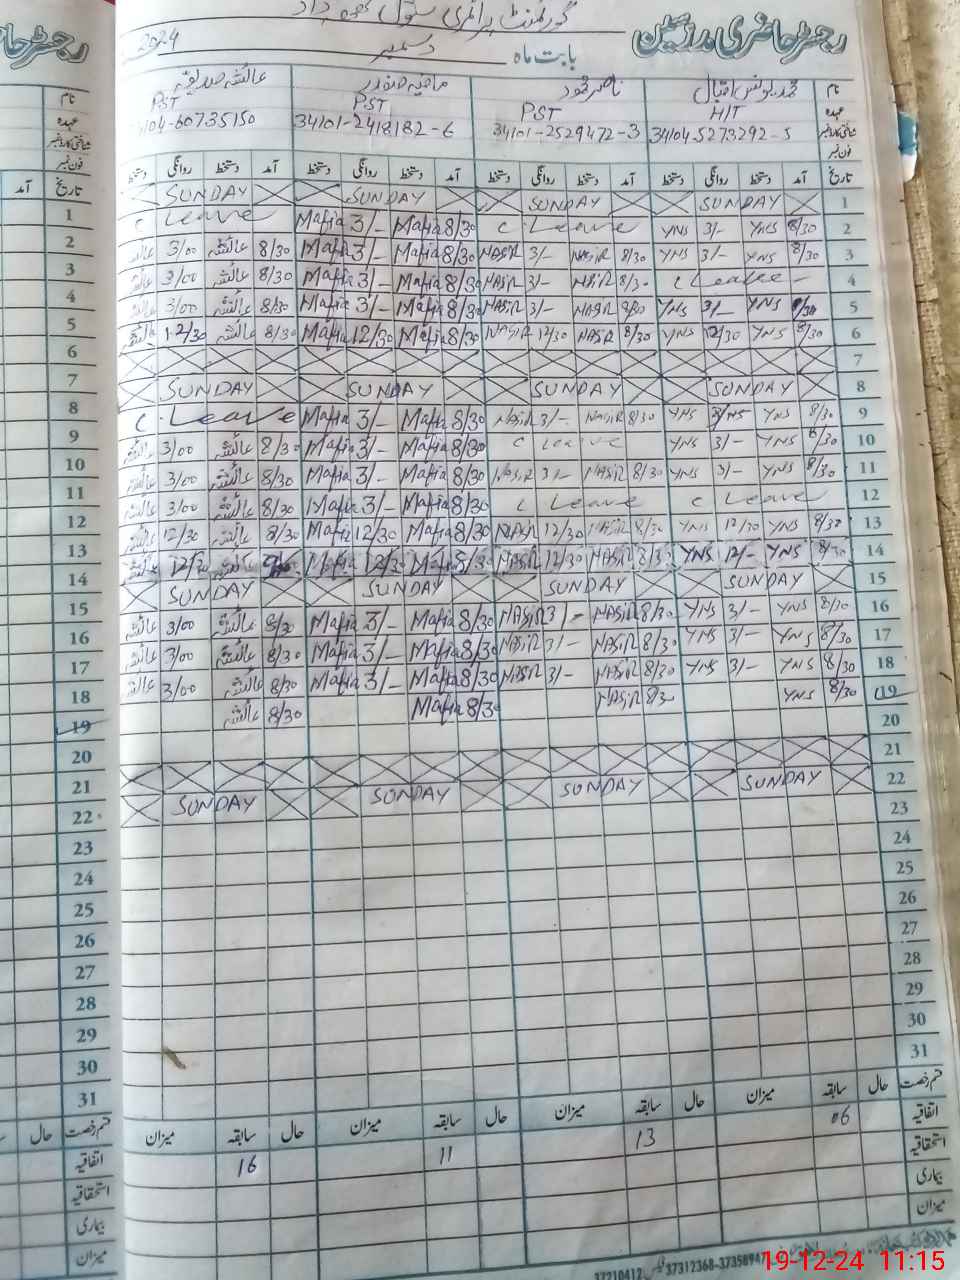 رجسٹر حاضری مدرسین
گورنمنٹ پرائمری سکول
بابت ماہ دسمبر 2024
نام محمد یونس اقبال ناصر محمود عائشہ صدیقہ
عہدہ HIT PST PST PST
شناختی کارڈ نمبر 34104-5273292-5 34101-2529472-3 34101-2418182-6 4104-60735150
فون نمبر
تاریخ آمد دستخط روانگی دستخط آمد دستخط روانگی دستخط آمد دستخط روانگی دستخط آمد دستخط روانگی دستخط
1 SUNDAY SUNDAY SUNDAY SUNDAY
2 8/30 YNS 3/- YNS C Leave 8/30 Mafia 3/- Mafia C Leave
3 8/30 YNS 3/- YNS 8/30 NASIR 3/- NASIR 8/30 Mafia 3/- Mafia 8/30 عائشہ 3/00 عائشہ
4 C Leave 8/30 NASIR 3/- NASIR 8/30 Mafia 3/- Mafia 8/30 عائشہ 3/00 عائشہ
5 8/30 YNS 3/- YNS 8/30 NASIR 3/- NASIR 8/30 Mafia 3/- Mafia 8/30 عائشہ 3/00 عائشہ
6 8/30 YNS 12/30 YNS 8/30 NASIR 12/30 NASIR 8/30 Mafia 12/30 Mafia 8/30 عائشہ 12/30 عائشہ
7
8 SUNDAY SUNDAY SUNDAY SUNDAY
9 8/30 YNS YNS 8/30 NASIR 3/- NASIR 8/30 Mafia 3/- Mafia C Leave
10 8/30 YNS 3/- YNS C Leave 8/30 Mafia 3/- Mafia 8/30 عائشہ 3/00 عائشہ
11 8/30 YNS 3/- YNS 8/30 NASIR 3/- NASIR 8/30 Mafia 3/- Mafia 8/30 عائشہ 3/00 عائشہ
12 C Leave C Leave 8/30 Mafia 3/- Mafia 8/30 عائشہ 3/00 عائشہ
13 8/30 YNS 12/30 YNS 8/30 NASIR 12/30 NASIR 8/30 Mafia 12/30 Mafia 8/30 عائشہ 12/30 عائشہ
14 8/30 YNS 12/- YNS 8/30 NASIR 12/30 NASIR 8/30 Mafia 12/30 Mafia عائشہ 12/30 عائشہ
15 SUNDAY SUNDAY SUNDAY SUNDAY
16 8/30 YNS 3/- YNS 8/30 NASIR 3/- NASIR 8/30 Mafia 3/- Mafia 8/30 عائشہ 3/00 عائشہ
17 8/30 YNS 3/- YNS 8/30 NASIR 3/- NASIR 8/30 Mafia 3/- Mafia 8/30 عائشہ 3/00 عائشہ
18 8/30 YNS 3/- YNS 8/30 NASIR 3/- NASIR 8/30 Mafia 3/- Mafia 8/30 عائشہ 3/00 عائشہ
19 8/30 YNS 8/30 NASIR 8/30 Mafia 8/30 عائشہ
20
21
22 SUNDAY SUNDAY SUNDAY SUNDAY
23
24
25
26
27
28
29
30
31
قسم رخصت حال سابقہ میزان حال سابقہ میزان حال سابقہ میزان حال سابقہ میزان
اتفاقیہ 06 13 11 16
استحقاقیہ
بیماری
میزان
37312368-37358947
37210412
رجسٹر حا
نام
عہدہ
شناختی کارڈ نمبر
فون نمبر
تاریخ آمد
1
2
3
4
5
6
7
8
9
10
11
12
13
14
15
16
17
18
19
20
21
22
23
24
25
26
27
28
29
30
31
قسم رخصت حال
اتفاقیہ
استحقاقیہ
بیماری
میزان
19-12-24 11:15